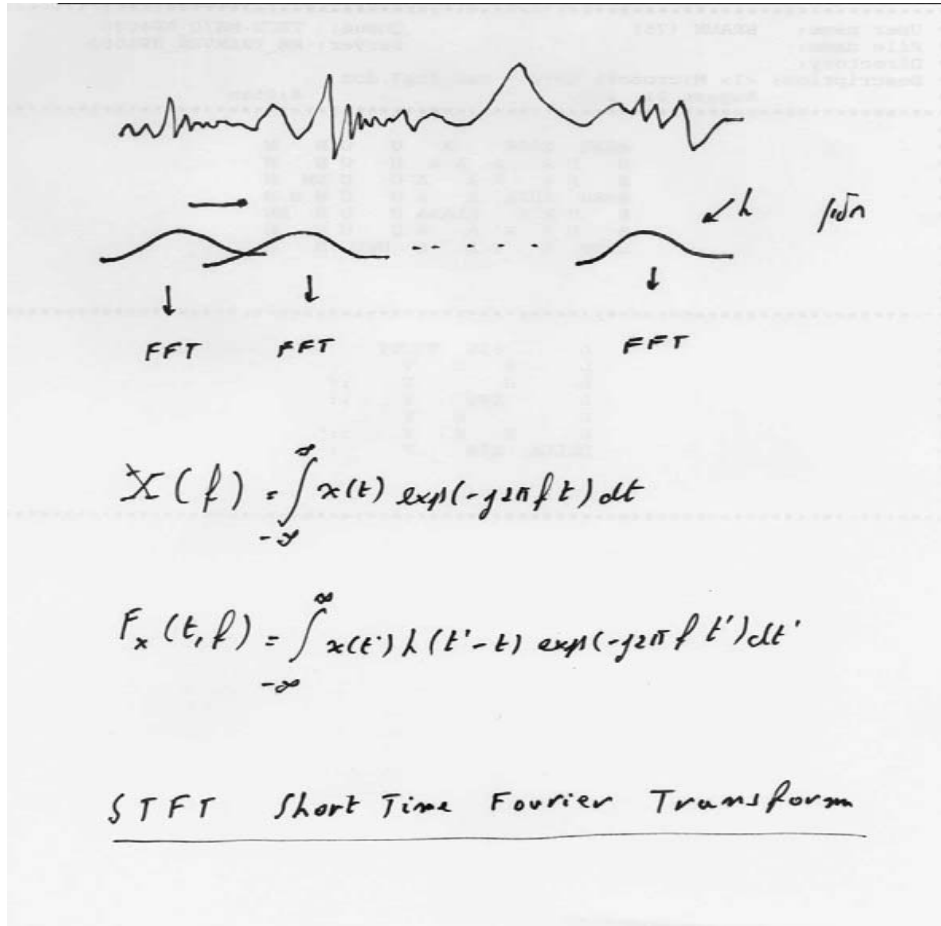 h חלון
FFT FFT FFT
X(f) = ∫_{-∞}^{∞} x(t) exp(-j2πft)dt
F_x(t,f) = ∫_{-∞}^{∞} x(t')h(t'-t) exp(-j2πft')dt'
STFT Short Time Fourier Transform